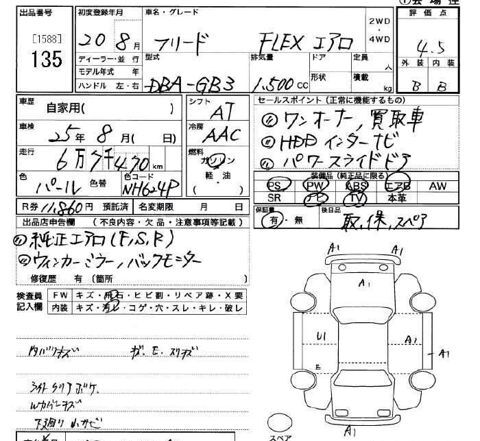 出品番号 初度登録年月 車名・グレード 2WD ・ 4WD 評価点
[1588] 135 20 8月 フリード FLEX エアロ 4.5
ディーラー・並行 型式 排気量 ドア 定員 人 外装 内装
モデル年式 年 形状 積載 kg
ハンドル 左・右 DBA-GB3 1,500 CC B B
車歴 自家用( ) シフト AT セールスポイント(正常に機能するもの)
車検 25年8月( 日) 冷房 AAC ワンオーナー, 買取車
走行 6万7千470 km 燃料 ガソリン ・ 軽油 ・ ( ) HDDインターナビ
色 パール 色替 色コード NH624P パワースライドドア
装備品(純正品に限る)
PS PW ABS エアB AW
SR ナビ TV 本革
R券 11,860円 預託済 名変期限 月 日 保証書 有・無 後日品 取,保,スペア
出品店申告欄 (不良内容・欠品・注意事項等記載)
純正エアロ(F,S,R)
ウィンカーミラー, バックモニター
修復歴 有 (箇所
検査員記入欄 FW キズ・飛石・ヒビ割・リペア跡・X要
内装 キズ・汚レ・コゲ・穴・スレ・キレ・破レ
内バリキズ
下廻り小サビ
A1 A1
A1
U1 A1 A1
E
A1
スペア